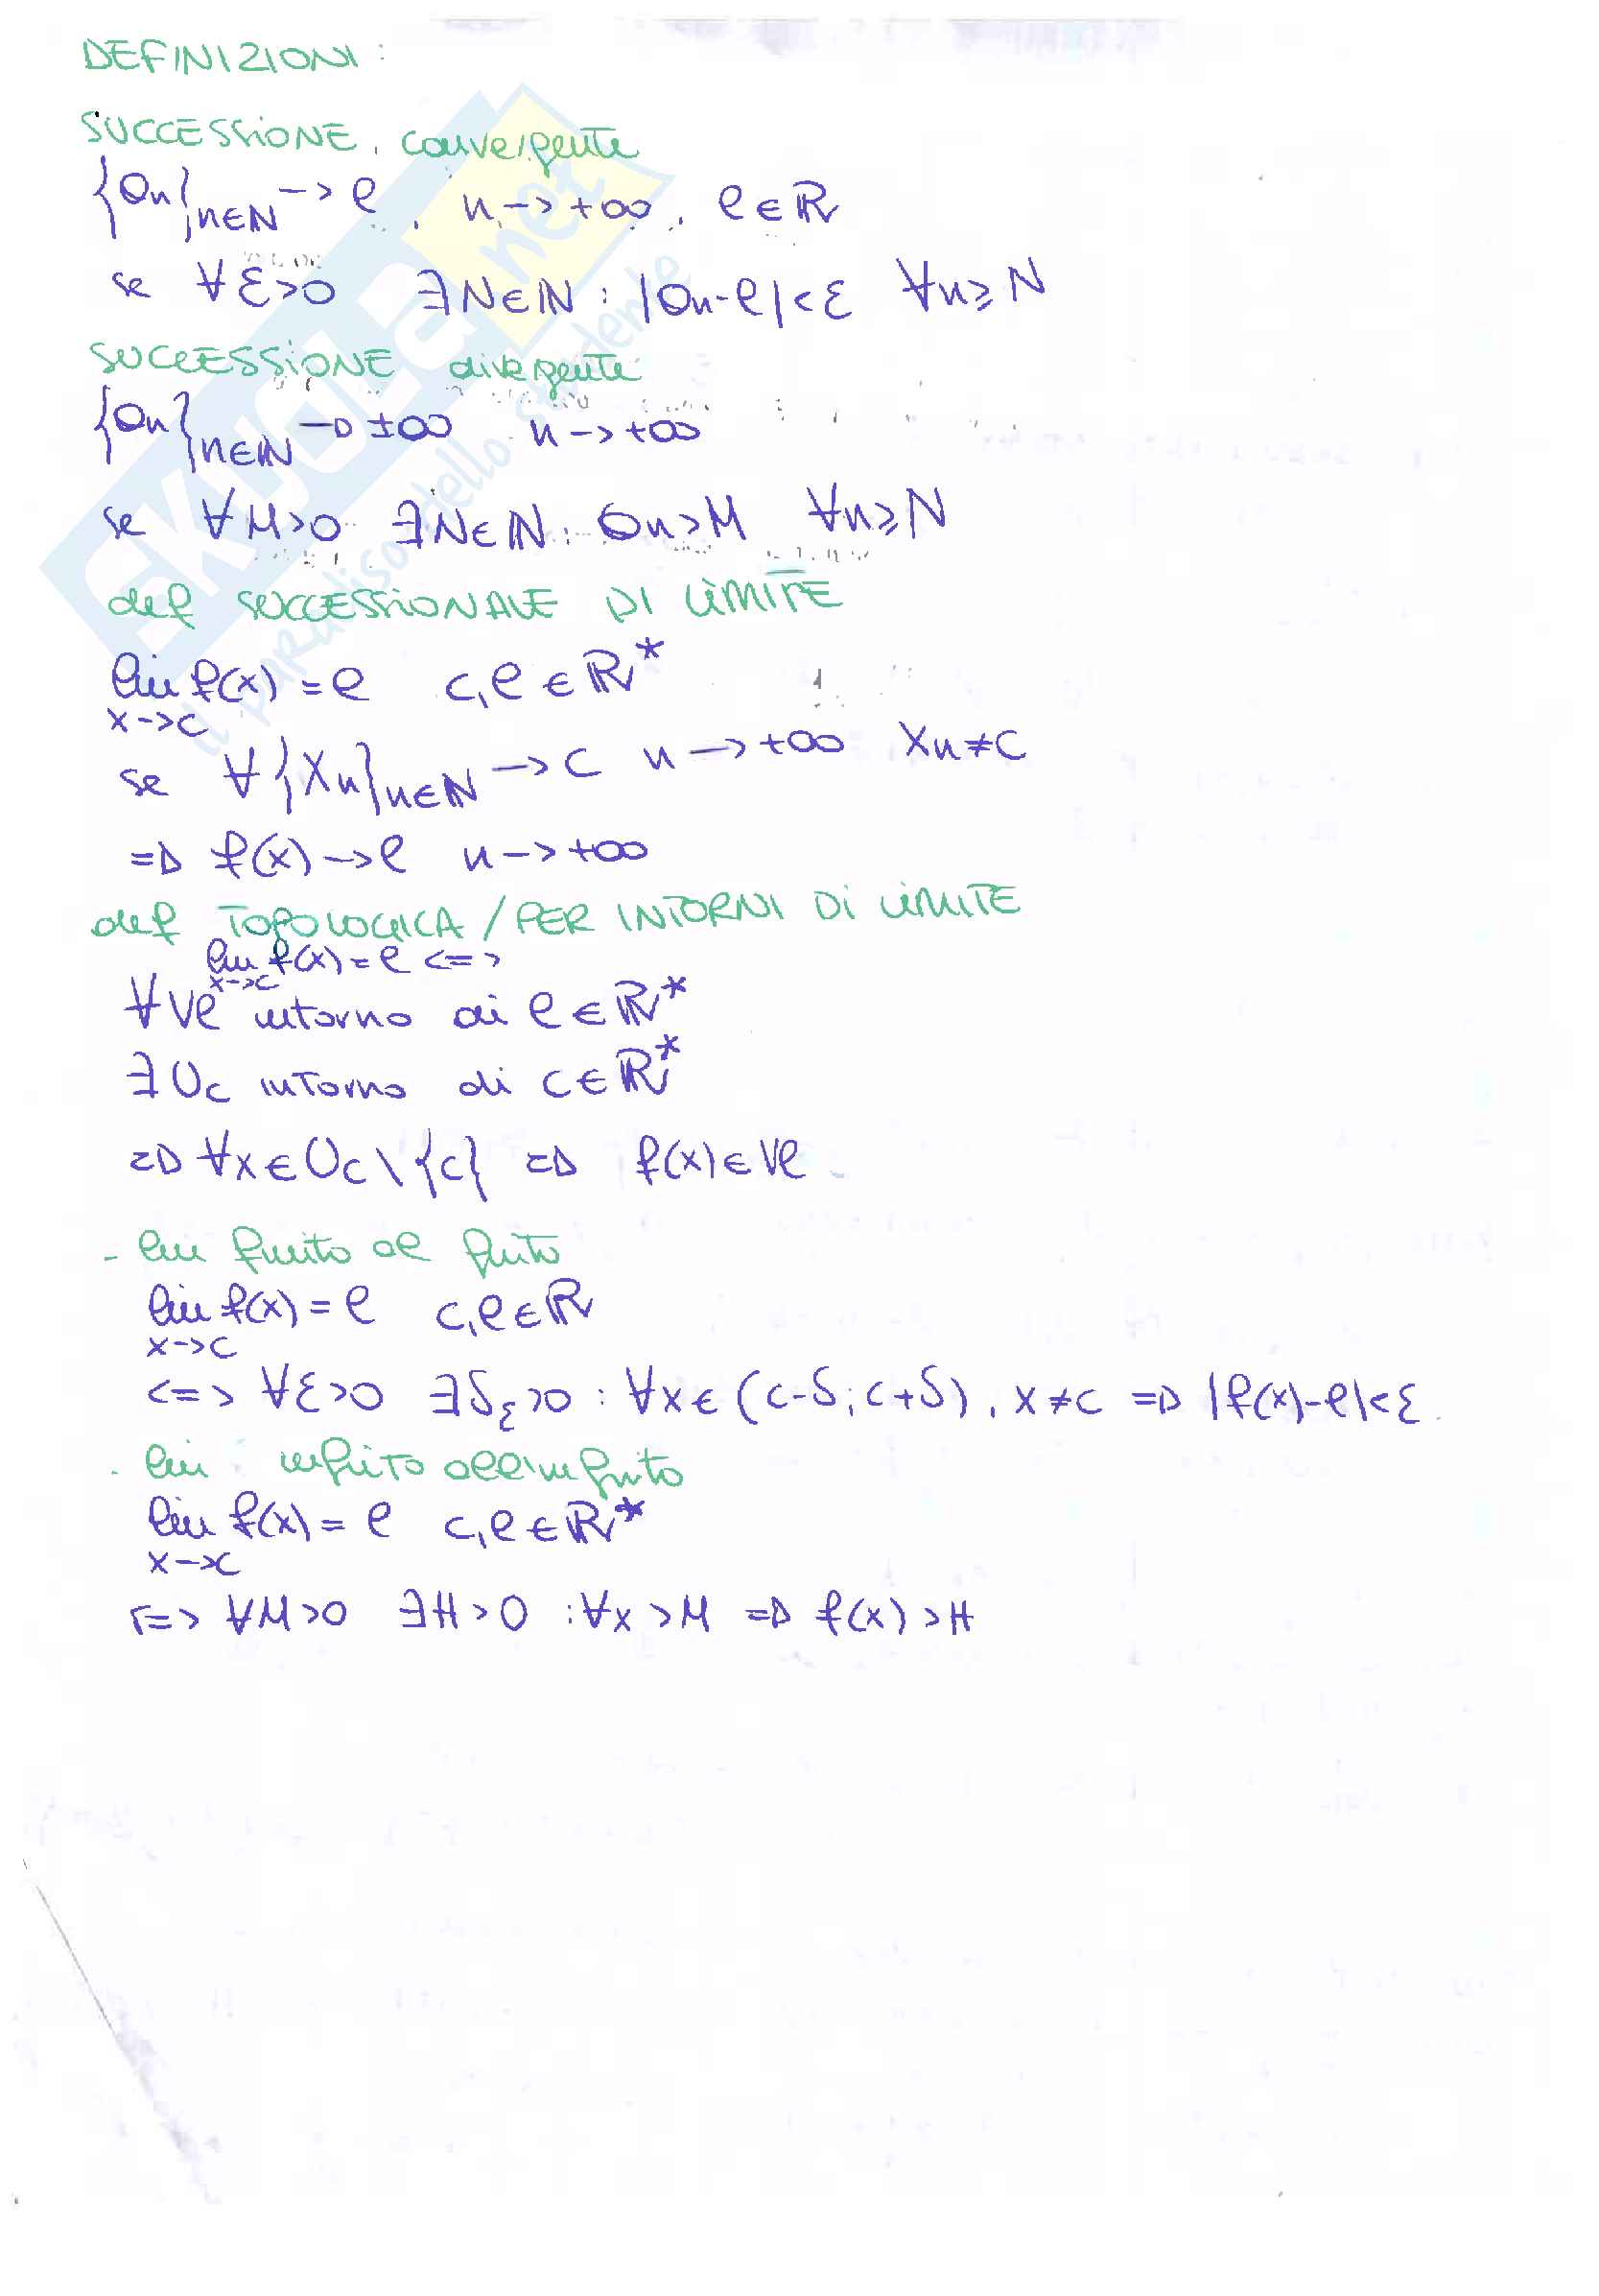 DEFINIZIONI:
SUCCESSIONE convergente
{an}n∈ℕ -> l , n -> +∞, l ∈ ℝ
se ∀ε>0 ∃N∈ℕ : |an-l|<ε ∀n≥N
SUCCESSIONE divergente
{an}n∈ℕ -> ±∞ n -> +∞
se ∀M>0 ∃N∈ℕ: an>M ∀n≥N
def SUCCESSIONALE DI LIMITE
lim f(x) = l c,l ∈ ℝ*
x->c
se ∀{xn}n∈ℕ -> c n -> +∞ xn≠c
=> f(x) -> l n -> +∞
def TOPOLOGICA / PER INTORNI DI LIMITE
lim f(x) = l <=>
x->c
∀Vl intorno di l ∈ ℝ*
∃Uc intorno di c ∈ ℝ*
=> ∀x ∈ Uc \ {c} => f(x) ∈ Vl
- lim finito al finito
lim f(x) = l c,l ∈ ℝ
x->c
<=> ∀ε>0 ∃δε>0 : ∀x ∈ (c-δ; c+δ), x≠c => |f(x)-l|<ε
- lim infinito all'infinito
lim f(x) = l c,l ∈ ℝ*
x->c
<=> ∀M>0 ∃H>0 : ∀x>M => f(x)>H
SKUOLA.net
il paradiso dello studente